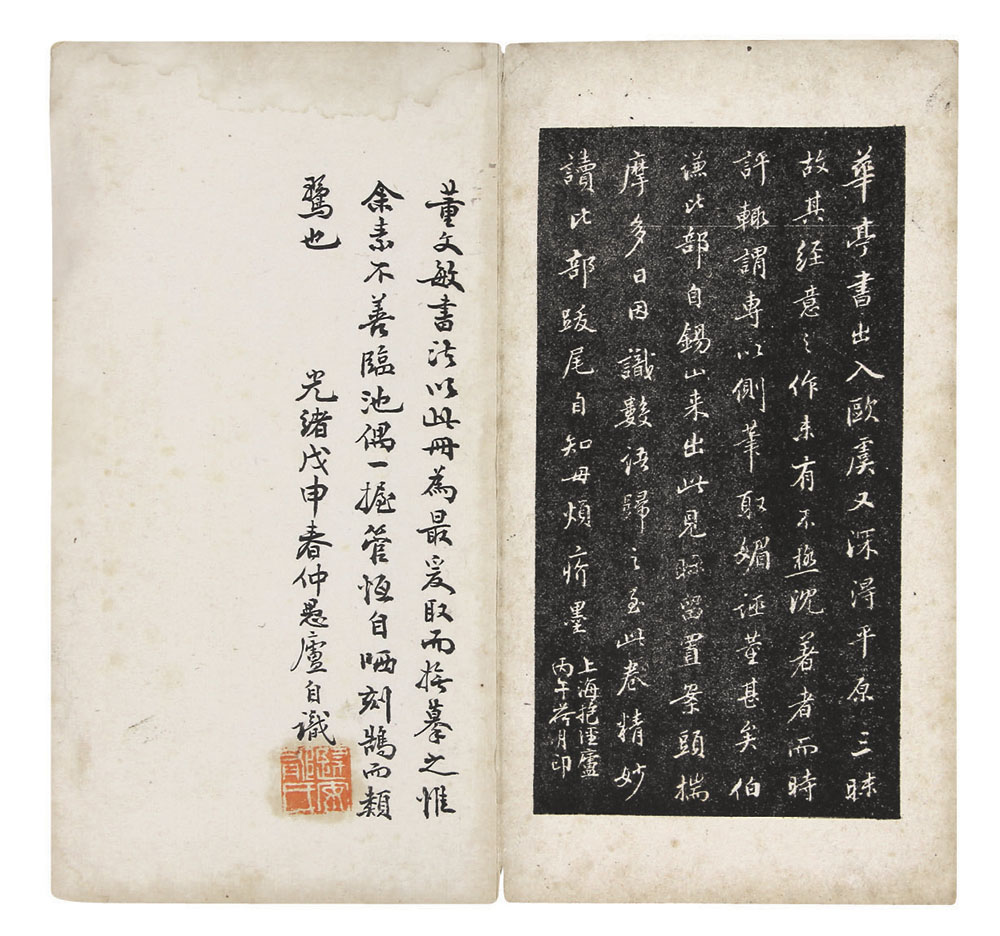 華亭書出入歐虞又深得平原三昧
故其經意之作未有不極沈著者而時
評輒謂專以側筆取媚誣董甚矣伯
謙比部自錫山来出此見眎留置案頭揣
摩多日因識數語歸之至此卷精妙
讀比部跋尾自知毋煩疥墨
上海抱經廬
丙午荷月印
董文敏書法以此冊為最爰取而橅摹之惟
余素不善臨池偶一握管恆自哂刻鵠而類
鶩也
光緒戊申春仲愚廬自識